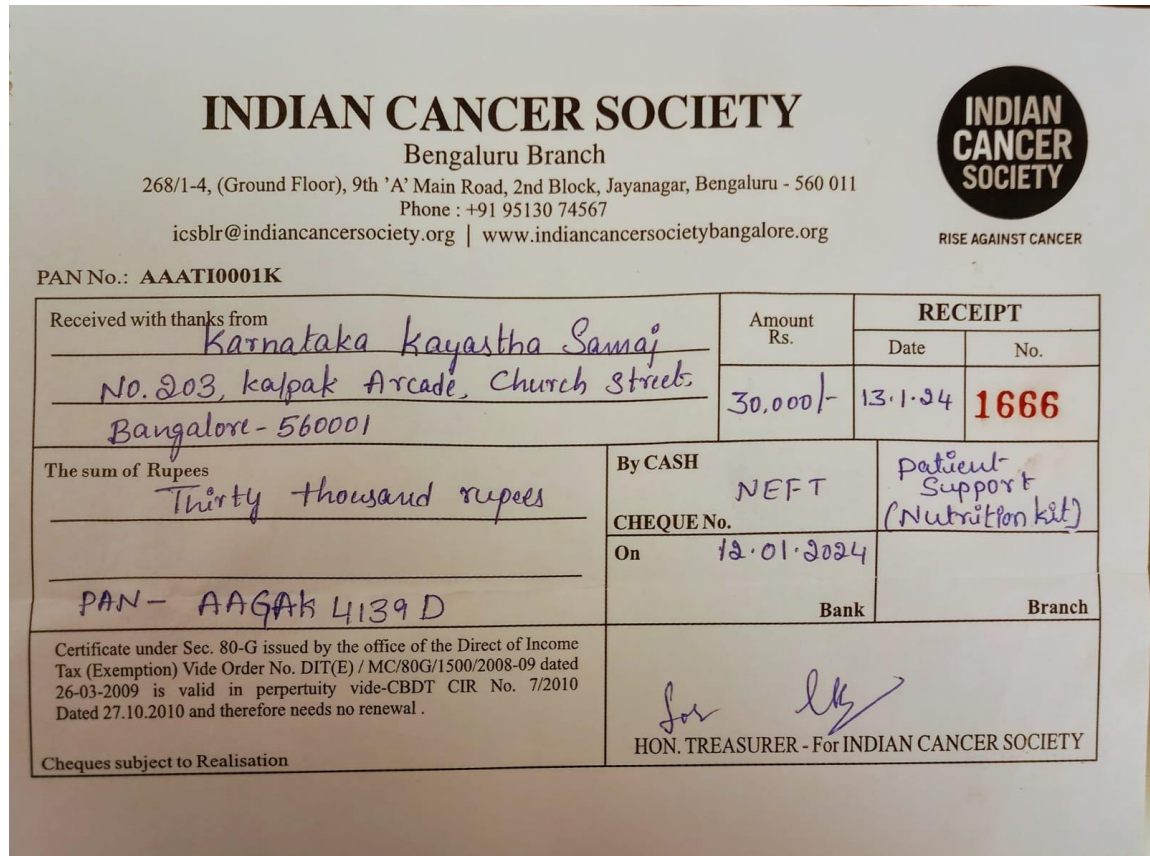 INDIAN CANCER SOCIETY
Bengaluru Branch
268/1-4, (Ground Floor), 9th 'A' Main Road, 2nd Block, Jayanagar, Bengaluru - 560 011
Phone : +91 95130 74567
icsblr@indiancancersociety.org | www.indiancancersocietybangalore.org
INDIAN
CANCER
SOCIETY
RISE AGAINST CANCER
PAN No.: AAATI0001K
Received with thanks from
Karnataka Kayastha Samaj
No. 203, Kalpak Arcade, Church Street.
Bangalore - 560001
Amount
Rs.
30,000/-
RECEIPT
Date
13.1.24
No.
1666
The sum of Rupees
Thirty thousand rupees
PAN - AAGAK 4139 D
By CASH
NEFT
CHEQUE No.
Patient
Support
(Nutrition kit)
On 12.01.2024
Bank
Branch
Certificate under Sec. 80-G issued by the office of the Direct of Income
Tax (Exemption) Vide Order No. DIT(E) / MC/80G/1500/2008-09 dated
26-03-2009 is valid in perpertuity vide-CBDT CIR No. 7/2010
Dated 27.10.2010 and therefore needs no renewal .
Cheques subject to Realisation
for
HON. TREASURER - For INDIAN CANCER SOCIETY